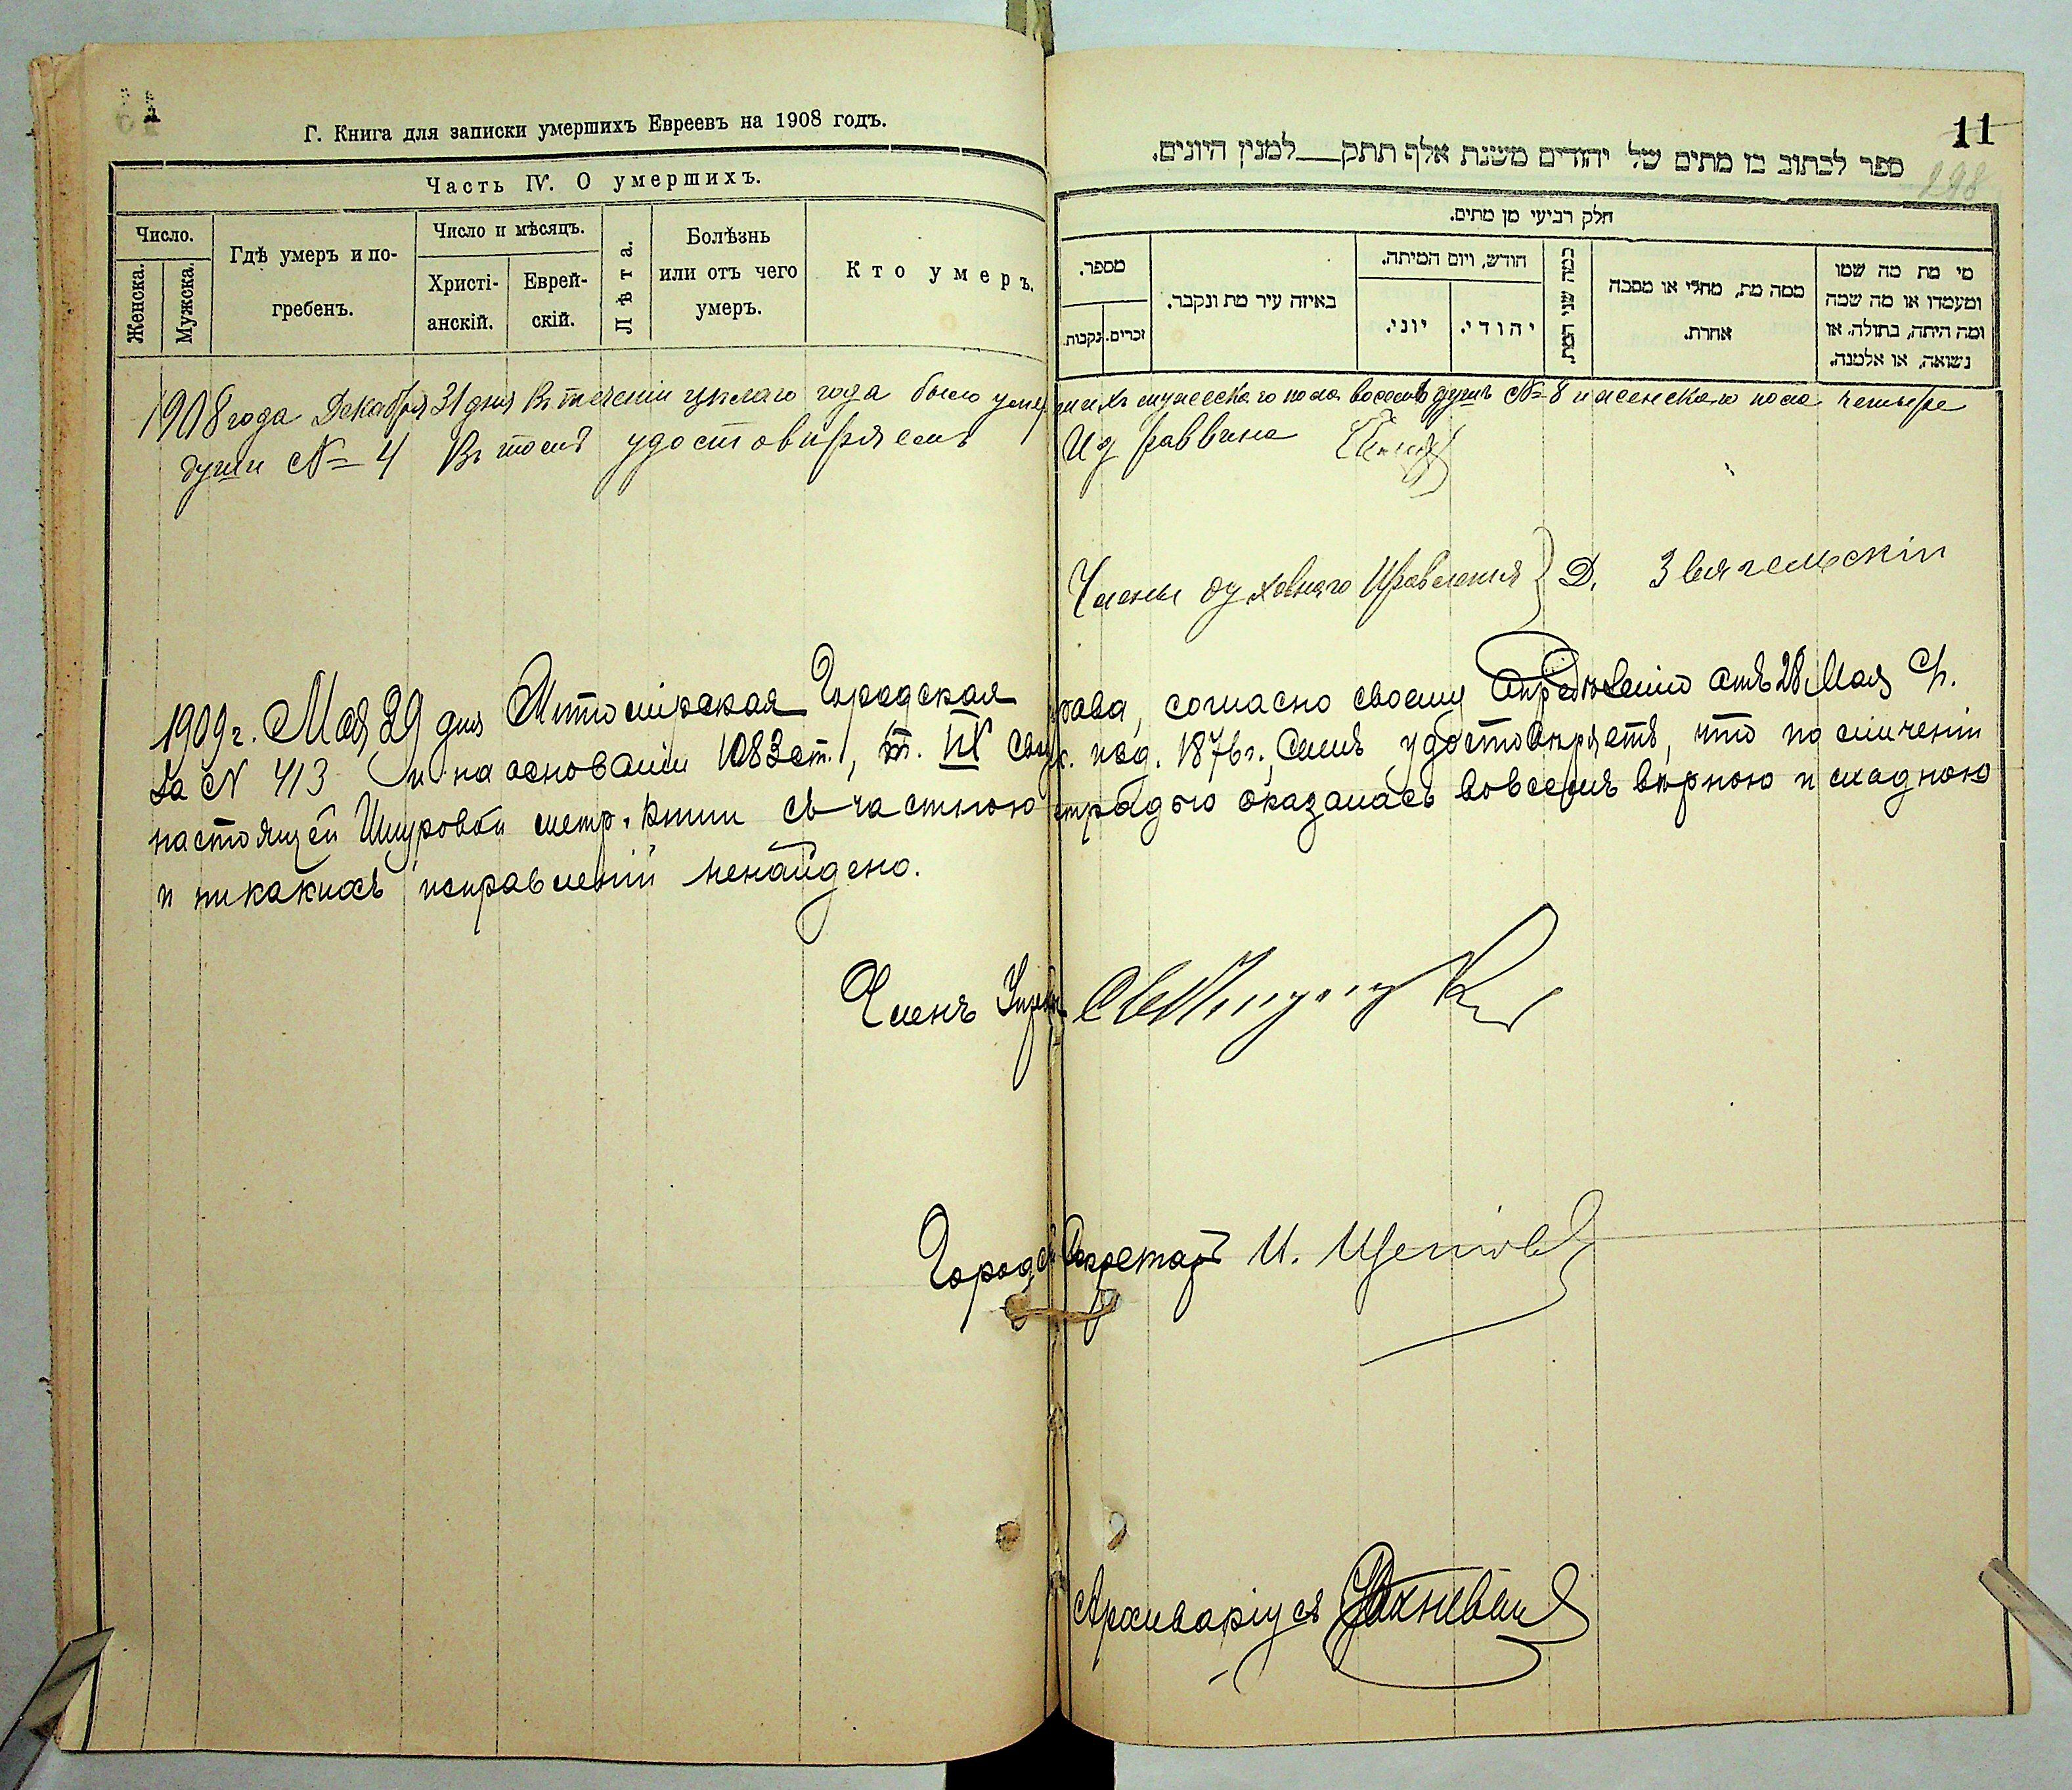 Г. Книга для записки умершихъ Евреевъ на 1908 годъ.
Часть IV. О умершихъ.
Число.
Женска.
Мужска.
Гдѣ умеръ и по-
гребенъ.
Число и мѣсяцъ.
Христі-
анскій.
Еврей-
скій.
Лѣта.
Болѣзнь
или отъ чего
умеръ.
Кто умеръ.
11
298
ספר לכתוב בו מתים של יהודים משנת אלף תתק__למנין היונים.
חלק רביעי מן מתים.
מספר.
נקבות.
זכרים.
באיזה עיר מת ונקבר.
חודש, ויום המיתה.
יוני.
יהודי.
כמה שני המת.
ממה מת, מחלי או מסבה
אחרת.
מי מת מה שמו
ומעמדו או מה שמה
ומה היתה, בתולה, או
נשואה, או אלמנה.
1908 года Декабря 31 дня Въ теченіи цѣлаго года было умершихъ мужескаго пола восемь душъ № 8 и женскаго пола четыре
души № 4 Въ томъ удостовѣряемъ И д раввина
Члены духовнаго Правленія } Д. Звягельскій
1909 г. Мая 29 дня Житомірская Городская Управа, согласно своему опредѣленію отъ 28 Мая с/г.
за № 413 и на основаніи 1083 ст., т. IX изд. 1876 г., симъ удостовѣряетъ, что по сличеніи
настоящей Шнуровой метр. книги съ частною тетрадью оказалась вовсемъ вѣрною и сходною
и никакихъ исправленій ненайдено.
Членъ Управы
Городск. Секретарь И.
Архиваріусъ